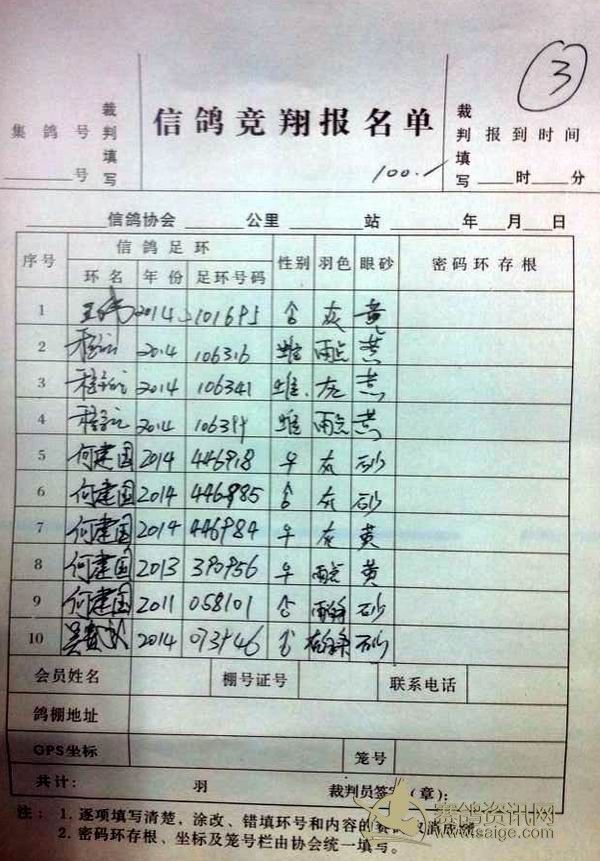 ③
集鸽号
_____号
裁判填写
信鸽竞翔报名单
100.
裁判填写
报到时间
____时____分
______信鸽协会 ______公里 ______站 ____年___月___日
序号 信鸽足环 性别 羽色 眼砂 密码环存根
环名 年份 足环号码
1 2014 101695 灰 黄
2 2014 106316 雌 雨点 黄
3 2014 106341 雌 灰 黄
4 2014 雌 雨点 黄
5 何建国 2014 446918 灰 砂
6 何建国 2014 446985 灰 砂
7 何建国 2014 446984 灰 黄
8 何建国 2013 390956 黄
9 何建国 2011 058101 砂
10 2014 砂
会员姓名 棚号证号 联系电话
鸽棚地址
GPS坐标 笼号
共计: 羽 裁判员签字(章):
注: 1.逐项填写清楚,涂改、错填环号和内容的赛鸽取消成绩。
2.密码环存根、坐标及笼号栏由协会统一填写。
赛鸽资讯网
www.saige.com